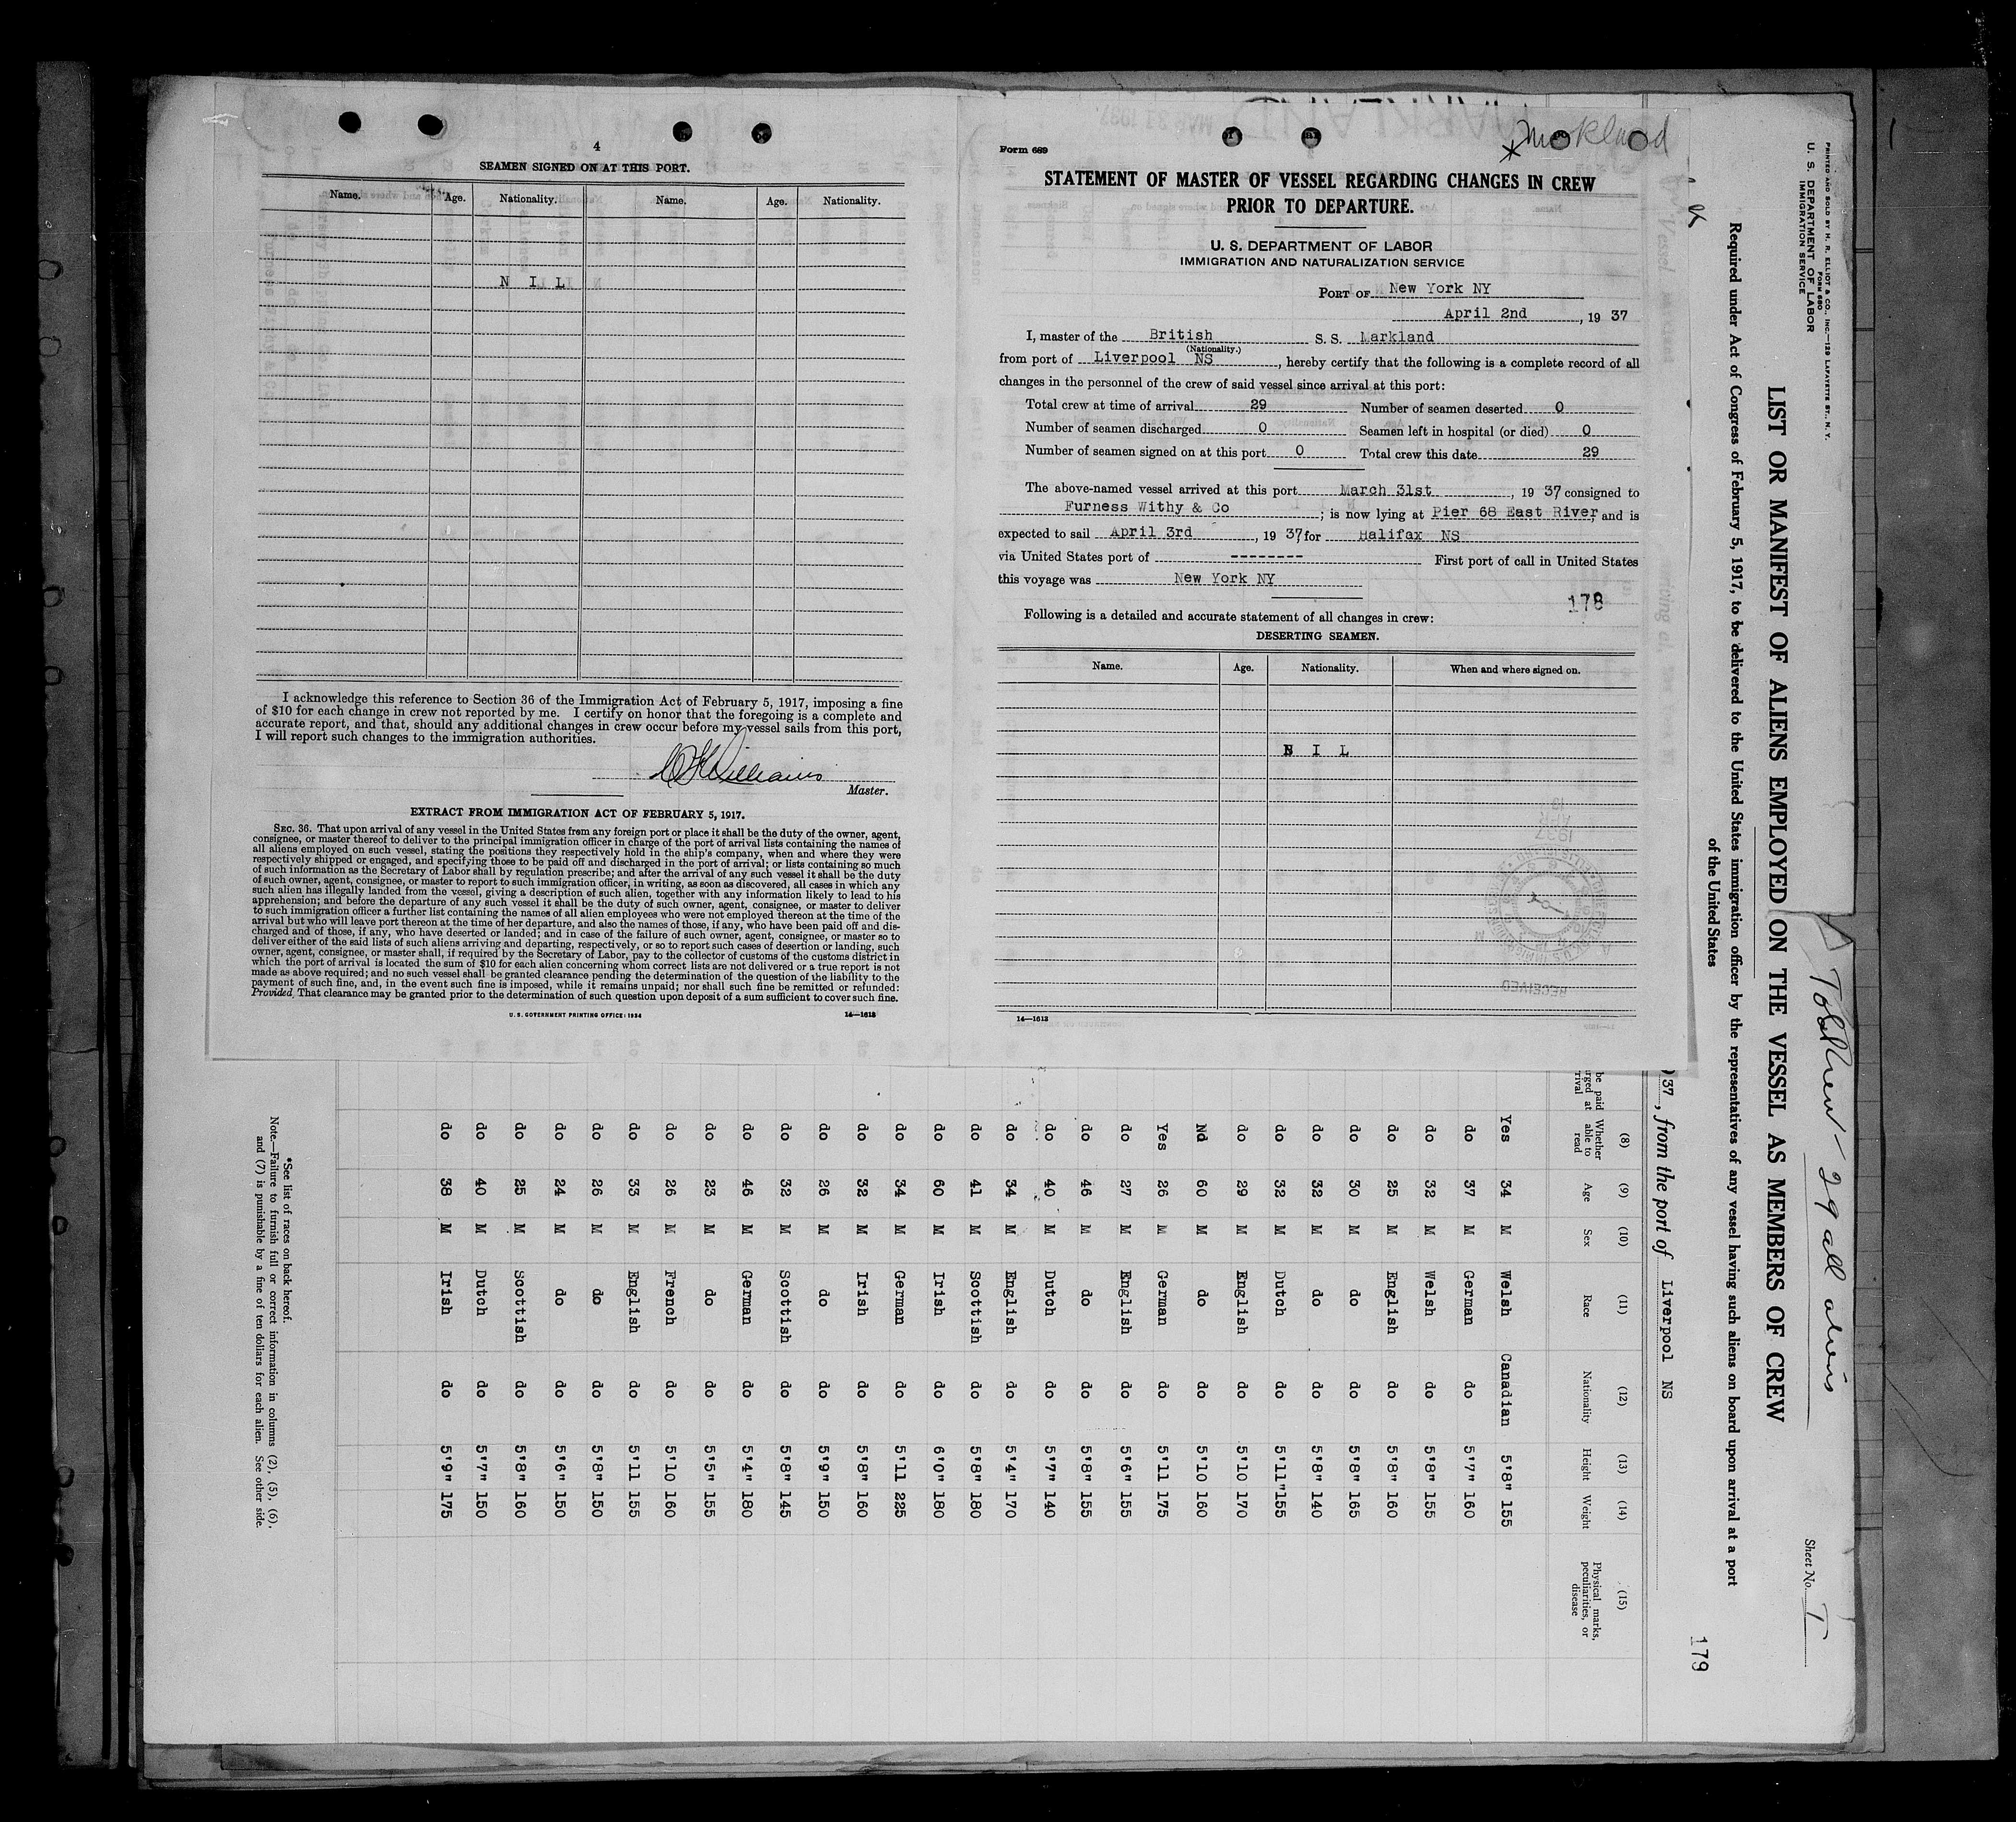 4
SEAMEN SIGNED ON AT THIS PORT.
Name. Age. Nationality. Name. Age. Nationality.
N I L
I acknowledge this reference to Section 36 of the Immigration Act of February 5, 1917, imposing a fine
of $10 for each change in crew not reported by me. I certify on honor that the foregoing is a complete and
accurate report, and that, should any additional changes in crew occur before my vessel sails from this port,
I will report such changes to the immigration authorities.
Williams
Master.
EXTRACT FROM IMMIGRATION ACT OF FEBRUARY 5, 1917.
SEC. 36. That upon arrival of any vessel in the United States from any foreign port or place it shall be the duty of the owner, agent,
consignee, or master thereof to deliver to the principal immigration officer in charge of the port of arrival lists containing the names of
all aliens employed on such vessel, stating the positions they respectively hold in the ship's company, when and where they were
respectively shipped or engaged, and specifying those to be paid off and discharged in the port of arrival; or lists containing so much
of such information as the Secretary of Labor shall by regulation prescribe; and after the arrival of any such vessel it shall be the duty
of such owner, agent, consignee, or master to report to such immigration officer, in writing, as soon as discovered, all cases in which any
such alien has illegally landed from the vessel, giving a description of such alien, together with any information likely to lead to his
apprehension; and before the departure of any such vessel it shall be the duty of such owner, agent, consignee, or master to deliver
to such immigration officer a further list containing the names of all alien employees who were not employed thereon at the time of the
arrival but who will leave port thereon at the time of her departure, and also the names of those, if any, who have been paid off and dis-
charged and of those, if any, who have deserted or landed; and in case of the failure of such owner, agent, consignee, or master so to
deliver either of the said lists of such aliens arriving and departing, respectively, or so to report such cases of desertion or landing, such
owner, agent, consignee, or master shall, if required by the Secretary of Labor, pay to the collector of customs of the customs district in
which the port of arrival is located the sum of $10 for each alien concerning whom correct lists are not delivered or a true report is not
made as above required; and no such vessel shall be granted clearance pending the determination of the question of the liability to the
payment of such fine, and, in the event such fine is imposed, while it remains unpaid; nor shall such fine be remitted or refunded:
Provided, That clearance may be granted prior to the determination of such question upon deposit of a sum sufficient to cover such fine.
U. S. GOVERNMENT PRINTING OFFICE: 1934 14—1613
Form 689
STATEMENT OF MASTER OF VESSEL REGARDING CHANGES IN CREW
PRIOR TO DEPARTURE.
U. S. DEPARTMENT OF LABOR
IMMIGRATION AND NATURALIZATION SERVICE
PORT OF New York NY
April 2nd, 19 37
I, master of the British S. S. Markland
(Nationality.)
from port of Liverpool NS, hereby certify that the following is a complete record of all
changes in the personnel of the crew of said vessel since arrival at this port:
Total crew at time of arrival 29 Number of seamen deserted 0
Number of seamen discharged 0 Seamen left in hospital (or died) 0
Number of seamen signed on at this port 0 Total crew this date 29
The above-named vessel arrived at this port March 31st, 19 37 consigned to
Furness Withy & Co; is now lying at Pier 68 East River, and is
expected to sail April 3rd, 19 37, for Halifax NS
via United States port of -------- First port of call in United States
this voyage was New York NY
178
Following is a detailed and accurate statement of all changes in crew:
DESERTING SEAMEN.
Name. Age. Nationality. When and where signed on.
N I L
14—1613
PRINTED AND SOLD BY H. R. ELLIOT & CO., INC.—129 LAFAYETTE ST., N. Y.
FORM 680
U. S. DEPARTMENT OF LABOR
IMMIGRATION SERVICE
29 all aliens
Sheet No. 1
LIST OR MANIFEST OF ALIENS EMPLOYED ON THE VESSEL AS MEMBERS OF CREW
Required under Act of Congress of February 5, 1917, to be delivered to the United States immigration officer by the representatives of any vessel having such aliens on board upon arrival at a port
of the United States
179
37, from the port of Liverpool NS
(8) (9) (10) (11) (12) (13) (14) (15)
Whether able to read Age Sex Race Nationality Height Weight Physical marks, peculiarities, or disease
Yes 34 M Welsh Canadian 5'8" 155
do 37 M German do 5'7" 160
do 32 M Welsh do 5'8" 155
do 25 M English do 5'8" 160
do 30 M do do 5'8" 165
do 32 M do do 5'8" 140
do 32 M Dutch do 5'11" 155
do 29 M English do 5'10 170
No 60 M do do 5'10 160
Yes 26 M German do 5'11 175
do 27 M English do 5'6" 155
do 46 M do do 5'8" 155
do 40 M Dutch do 5'7" 140
do 34 M English do 5'4" 170
do 41 M Scottish do 5'8" 180
do 60 M Irish do 6'0" 180
do 34 M German do 5'11 225
do 32 M Irish do 5'8" 160
do 26 M do do 5'9" 150
do 32 M Scottish do 5'8" 145
do 46 M German do 5'4" 180
do 23 M do do 5'5" 155
do 26 M French do 5'10 160
do 33 M English do 5'11 155
do 26 M do do 5'8" 150
do 24 M do do 5'6" 150
do 25 M Scottish do 5'8" 160
do 40 M Dutch do 5'7" 150
do 38 M Irish do 5'9" 175
*See list of races on back hereof.
Note.—Failure to furnish full or correct information in columns (2), (5), (6),
and (7) is punishable by a fine of ten dollars for each alien. See other side.